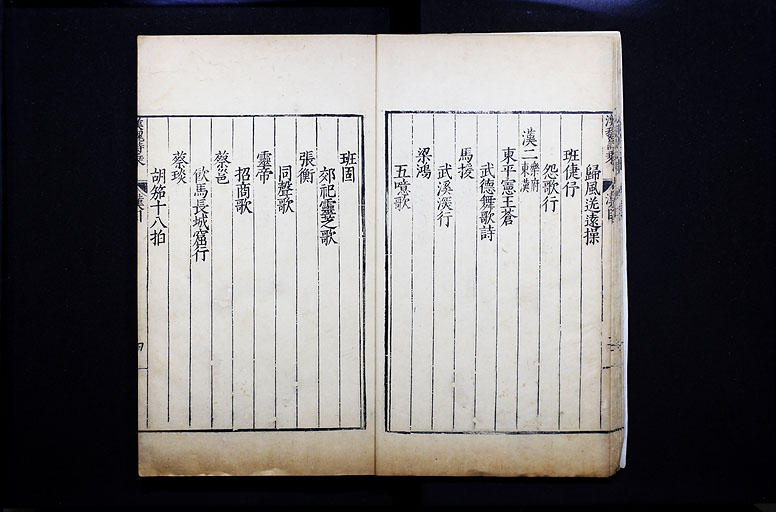 歸風送遠操
班倢伃
怨歌行
漢二樂府東漢
東平憲王蒼
武德舞歌詩
馬援
武溪深行
梁鴻
五噫歌
班固
郊祀靈芝歌
張衡
同聲歌
靈帝
招商歌
蔡邕
飲馬長城窟行
蔡琰
胡笳十八拍